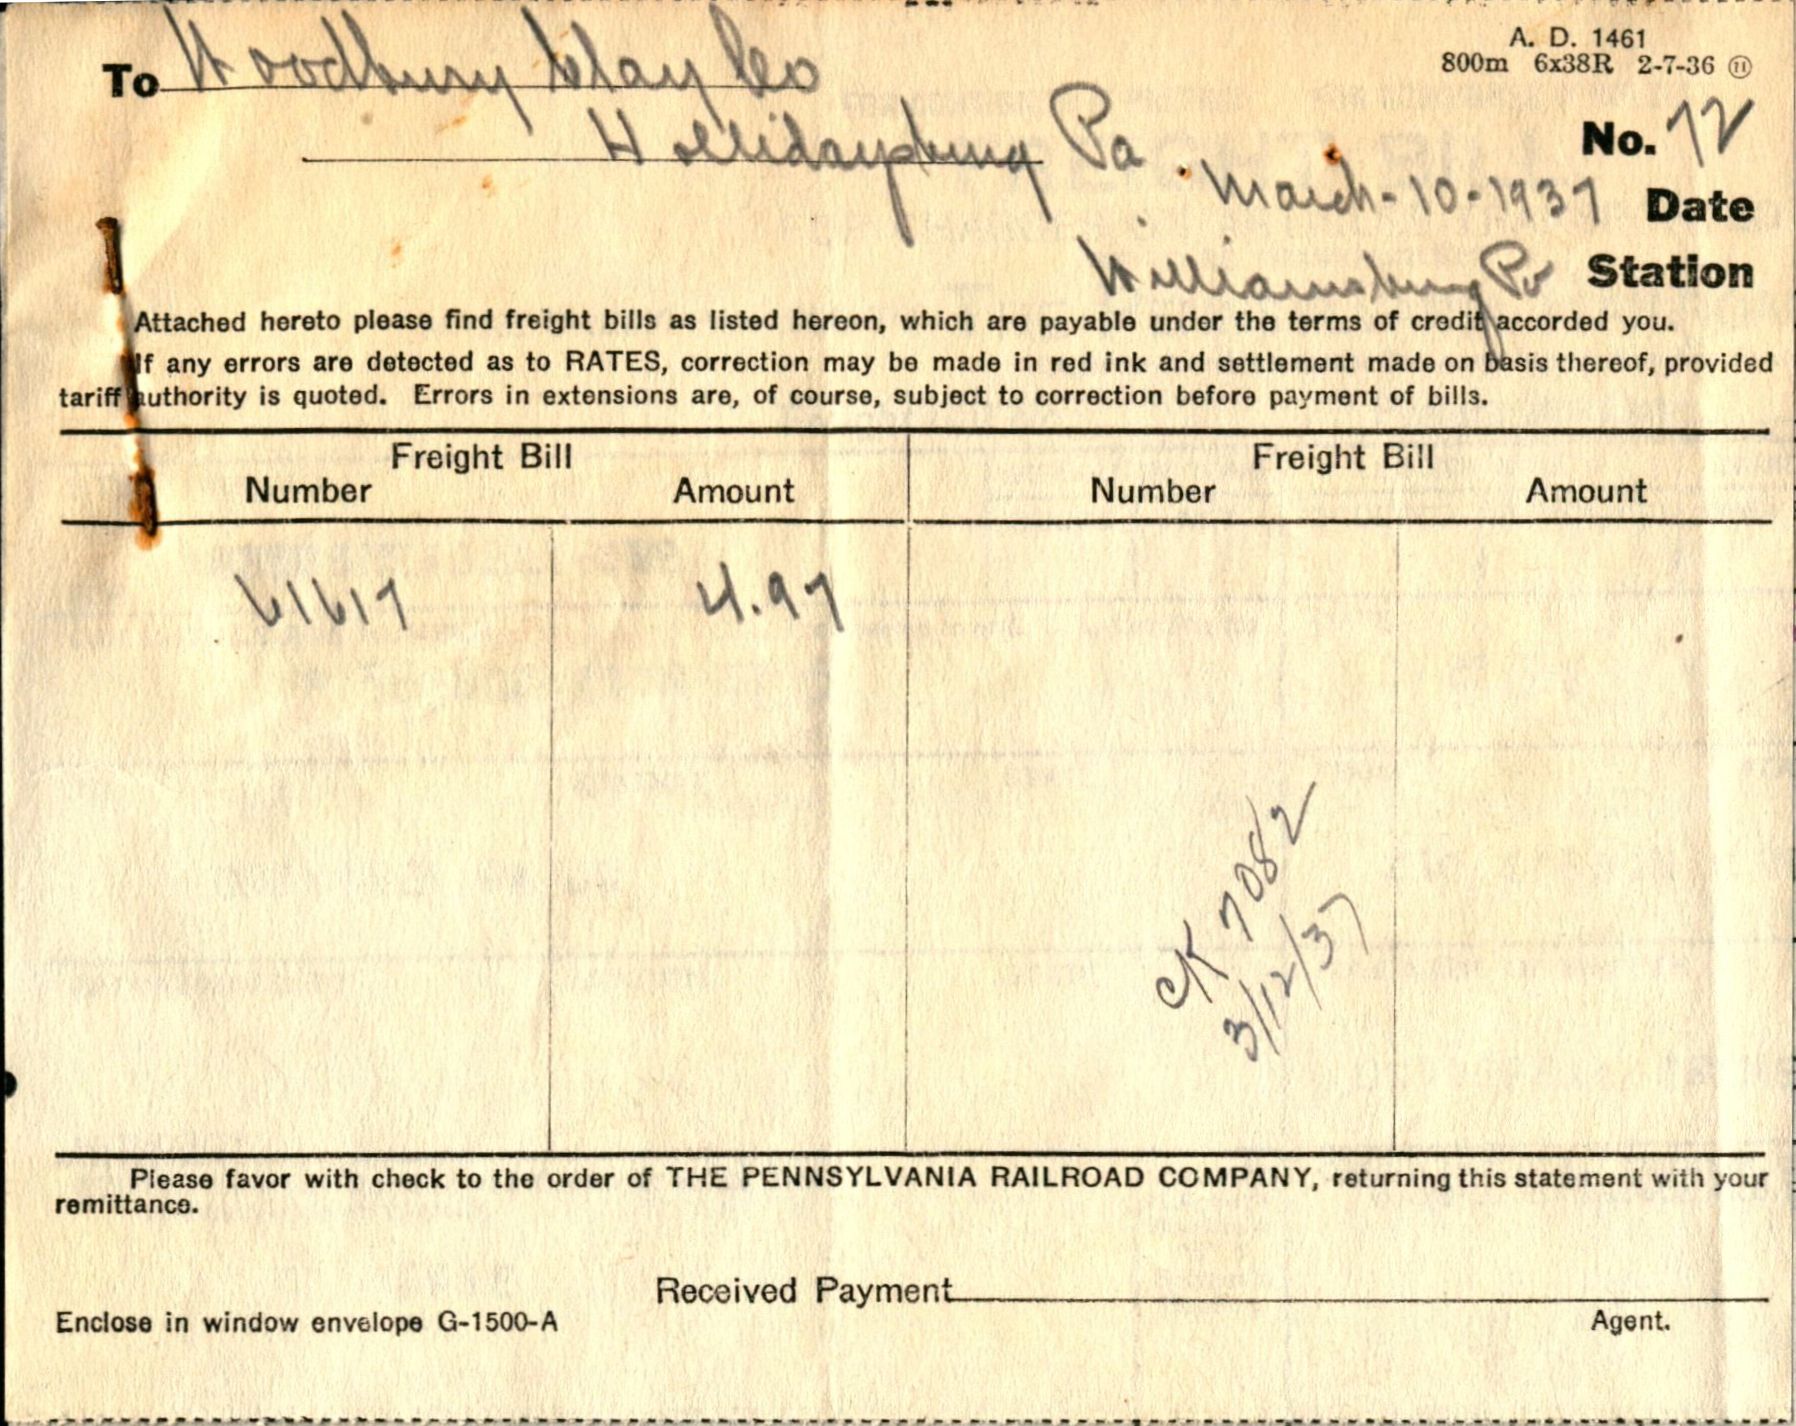 A. D. 1461
800m 6x38R 2-7-36 11
To Woodbury Clay Co
Hollidaysburg Pa.
No. 72
March-10-1937 Date
Williamsburg Pa Station
Attached hereto please find freight bills as listed hereon, which are payable under the terms of credit accorded you.
If any errors are detected as to RATES, correction may be made in red ink and settlement made on basis thereof, provided
tariff authority is quoted. Errors in extensions are, of course, subject to correction before payment of bills.
Freight Bill Freight Bill
Number Amount Number Amount
61617 4.97
CK 7082
3/12/37
Please favor with check to the order of THE PENNSYLVANIA RAILROAD COMPANY, returning this statement with your
remittance.
Received Payment
Enclose in window envelope G-1500-A Agent.